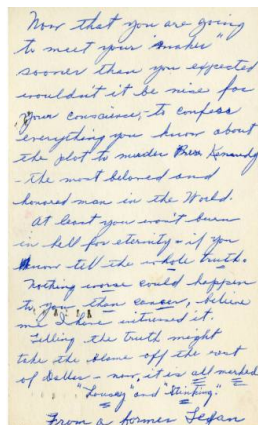 Now that you are going
to meet your "maker"
sooner than you expected
wouldn't it be nice for
your conscience, - to confess
everything you know about
the plot to murder Pres. Kennedy
- the most beloved and
honored man in the World.
At least you won't burn
in hell for eternity - if you
know tell the whole truth.
Nothing worse could happen
to you than cancer, believe
me I have witnessed it.
Telling the truth might
take the blame off the rest
of Dallas - now, it is all marked
"Lousey" and "Stinking".
From a former Texan